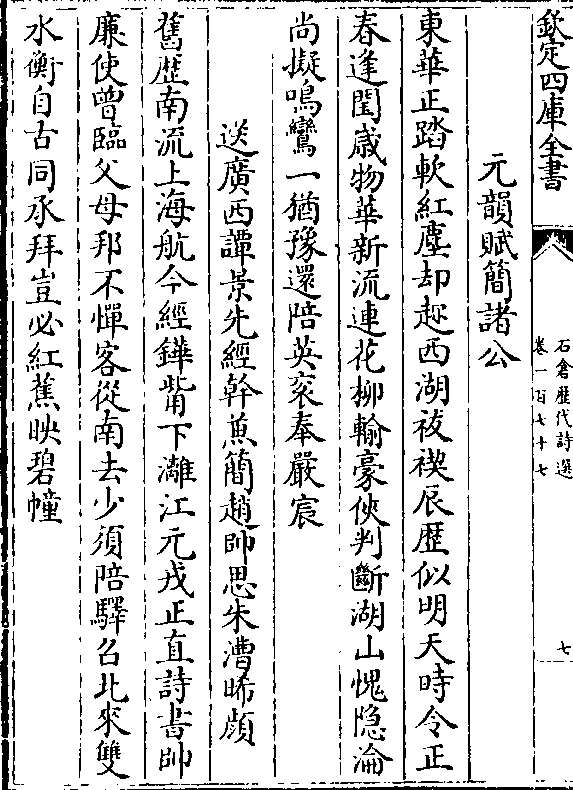 欽定四庫全書
石倉歷代詩選
卷一百七十七
七
元韻賦簡諸公
東華正踏軟紅塵却趂西湖祓禊辰歴似明天時令正
春逢閏歲物華新流連花柳輸豪俠判斷湖山愧隐淪
尚擬鳴鸞一猶豫還陪英衮奉嚴宸
送廣西譚景先經幹𠔥簡趙帥思朱漕晞顔
舊歴南流上海航今經鏵觜下灕江元戎正直詩書帥
廉使曾臨父母邦不憚客從南去少須陪驛召北來雙
水衡自古同承拜豈必紅蕉映碧幢